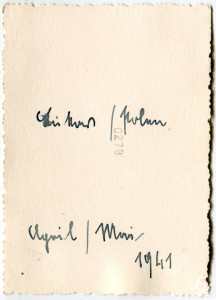 / Polen.
0279
April / Mai
1941